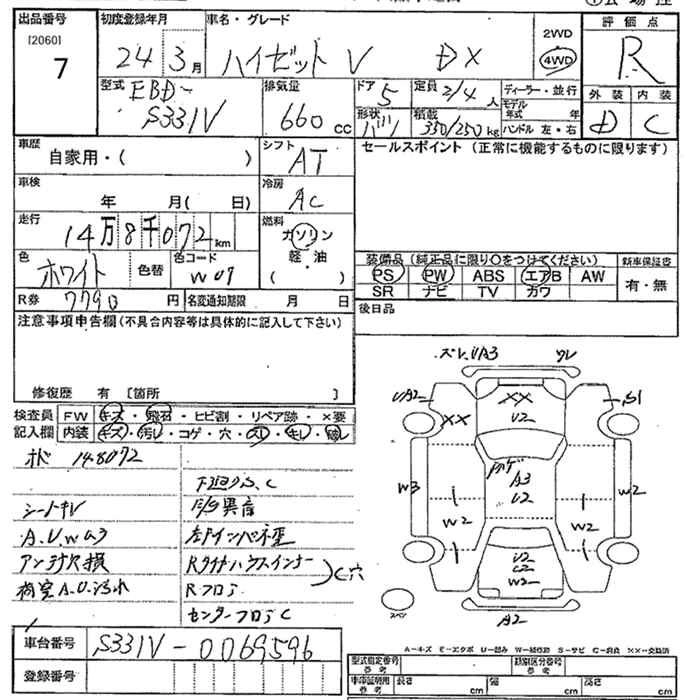 出品番号 初度登録年月 車名・グレード 評価点
[2060]
7 24年 3月 ハイゼット V DX 2WD 4WD R
型式 排気量 ドア 定員 ディーラー・並行 外装 内装
EBD-S331V 660cc 5 2/4人 モデル年式 年 D C
形状 バン 積載 350/250kg ハンドル 左・右
車歴 シフト セールスポイント (正常に機能するものに限ります)
自家用・( ) AT
車検 冷房
年 月( 日) AC
走行 燃料
14万8千072km ガソリン
色 ホワイト 色替 色コード W09 軽・油
( )
装備品 (純正品に限り○をつけてください) 新車保証書
PS PW ABS エアB AW 有・無
SR ナビ TV カワ
R券 7790円 名変通知期限 月 日 後日品
注意事項申告欄(不具合内容等は具体的に記入して下さい)
修復歴 有 [箇所 ]
検査員 FW キズ・飛石・ヒビ割・リペア跡・×要
記入欄 内装 キズ・汚レ・コゲ・穴・スレ・キレ・破レ
148072
下廻りS.C
異音
シートキレ
A.U.W a3
左Fインパネ歪
アンテナ欠損
Rタイヤハウスインナー
C穴
荷室A.U.汚れ
Rフロア
センターフロアC
車台番号 S331V-0069596
登録番号
ズレ.UA3 ワレ
UA2 XX XX S1
U2
A3
U2
W3 W2 W2 W2
U2
C2
W2
スペン
A2
A-キズ E-エクボ U-凹み W-補修跡 S-サビ C-腐食 XX-交換済
型式指定番号 参考 類別区分番号 参考
車庫証明用 参考 長さ cm 幅 cm 高さ cm